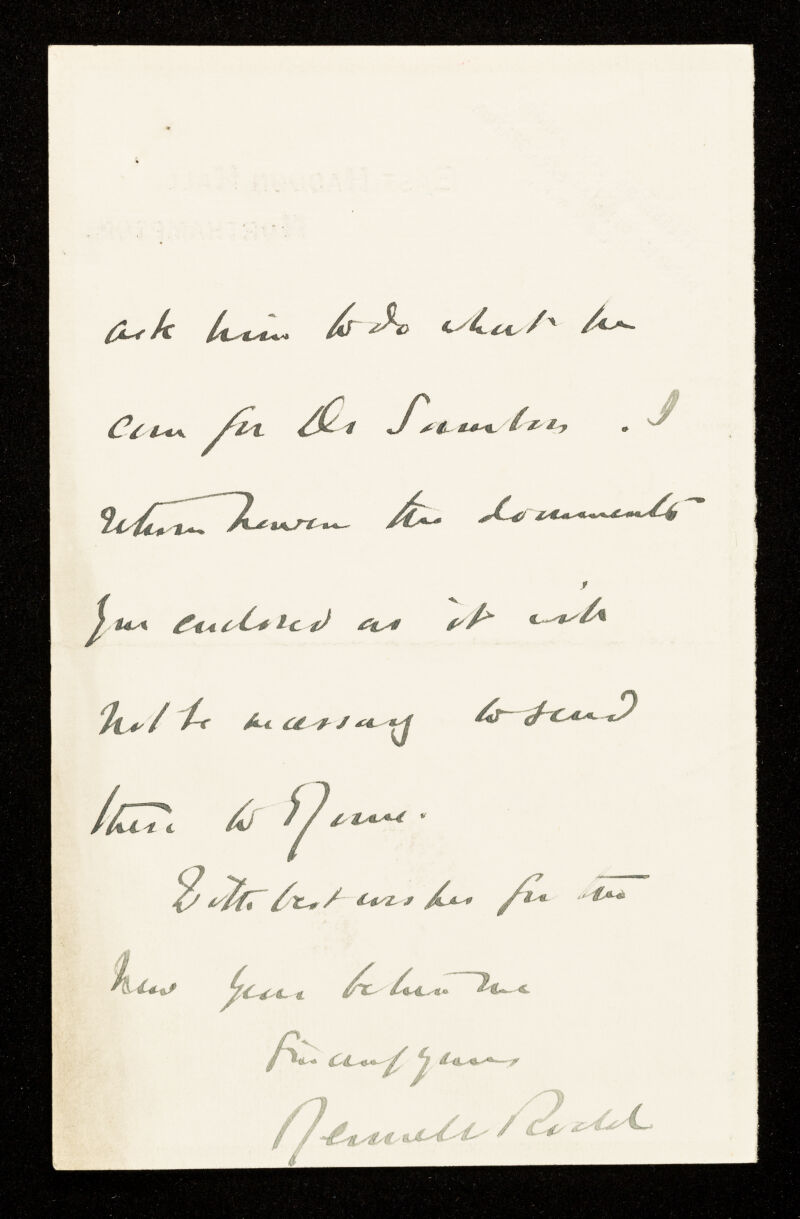 ask him to do what he
can for Dr Sambon. I
return however the documents
you enclosed as it will
not be necessary to send
these to Rome.
With best wishes for the
New Year believe me
Sincerely yours
Rennell Rodd
EAST HADDON HALL
NORTHAMPTON.